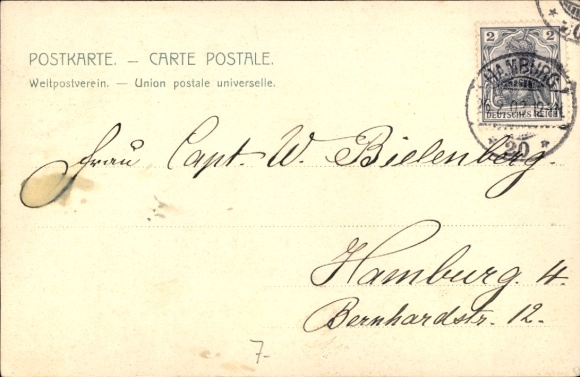 POSTKARTE. — CARTE POSTALE.
Weltpostverein. — Union postale universelle.
2 2
HAMBURG
DEUTSCHES REICH
* 20 *
Frau Capt. W. Bielenberg.
Hamburg. 4.
Bernhardstr. 12.
7-